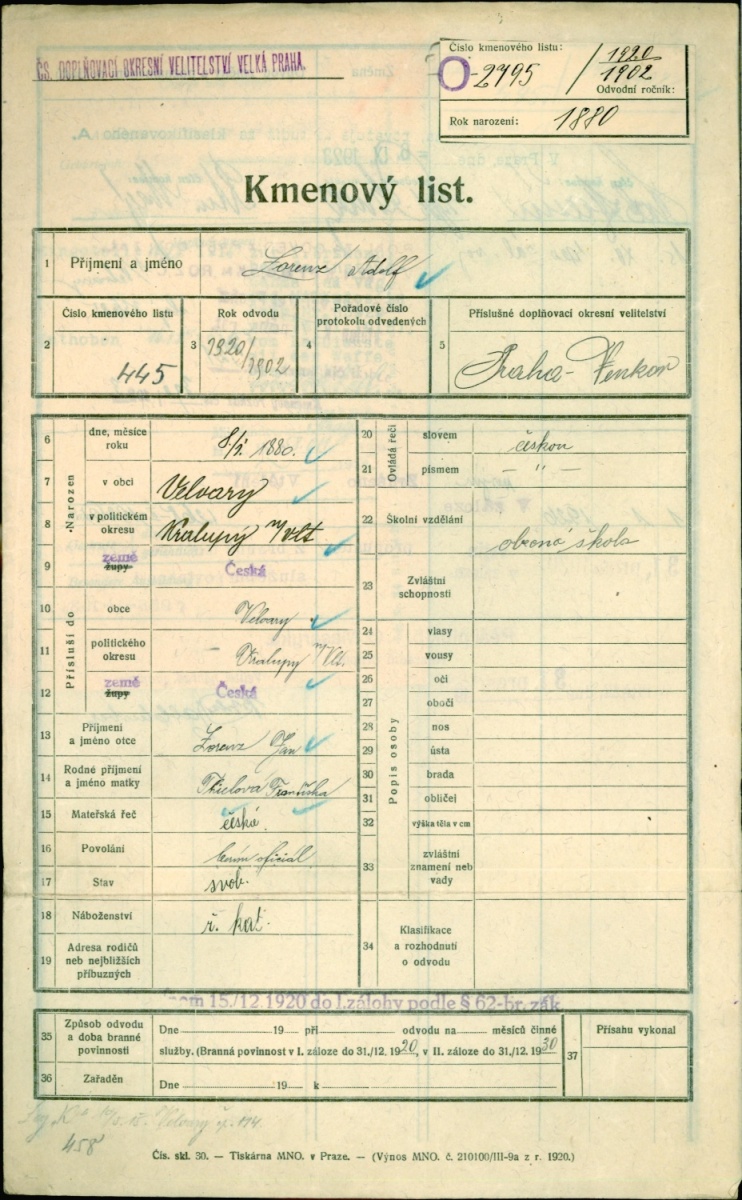 ČS. DOPLŇOVACÍ OKRESNÍ VELITELSTVÍ VELKÁ PRAHA.
Číslo kmenového listu:
O-2795 / 1920/1902
Odvodní ročník:
Rok narození: 1880
Kmenový list.
1 Příjmení a jméno Lorenz Adolf
2 Číslo kmenového listu 445
3 Rok odvodu 1920/1902
4 Pořadové číslo protokolu odvedených
5 Příslušné doplňovací okresní velitelství Praha-Venkov
Narozen
6 dne, měsíce roku 8/2. 1880.
7 v obci Velvary
8 v politickém okresu Kralupy n/Vlt
9 země župy Česká
Přísluší do
10 obce Velvary
11 politického okresu Kralupy n/Vlt.
12 země župy Česká
13 Příjmení a jméno otce Lorenz Jan
14 Rodné příjmení a jméno matky Františka
15 Mateřská řeč česká.
16 Povolání oficiál
17 Stav svob.
18 Náboženství ř. kat.
19 Adresa rodičů neb nejbližších příbuzných
Ovládá řeči
20 slovem českou
21 písmem — " —
22 Školní vzdělání obecná škola
23 Zvláštní schopnosti
Popis osoby
24 vlasy
25 vousy
26 oči
27 obočí
28 nos
29 ústa
30 brada
31 obličej
32 výška těla v cm
33 zvláštní znamení neb vady
34 Klasifikace a rozhodnutí o odvodu
15./12.1920 do I.zálohy podle § 62-br. zák.
35 Způsob odvodu a doba branné povinnosti
Dne 19 při odvodu na měsíců činné
služby. (Branná povinnost v I. záloze do 31./12. 1920, v II. záloze do 31./12. 1930
36 Zařaděn Dne 19 k
37 Přísahu vykonal
Velvary čp. 114.
458
Čís. skl. 30. — Tiskárna MNO. v Praze. — (Výnos MNO. č. 210100/III-9a z r. 1920.)